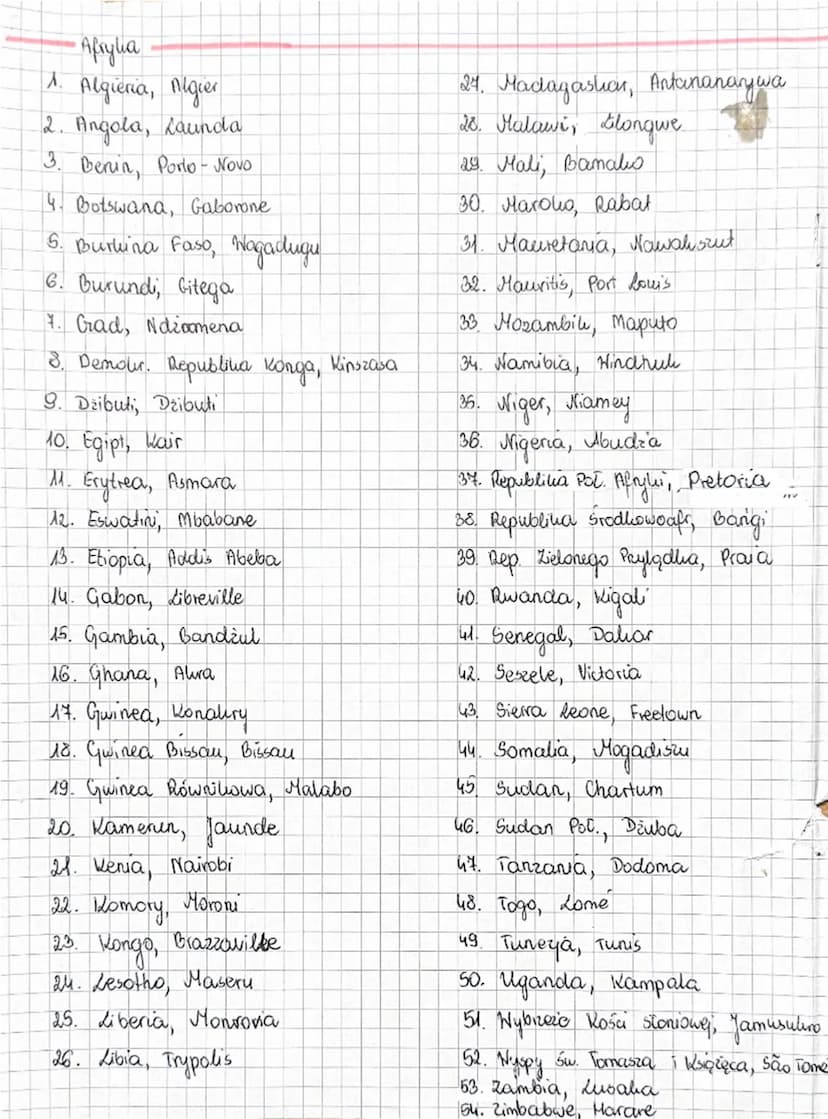 Afryka
1. Algieria, Algier
2. Angola, Launda
3. Benin, Porto-Novo
4. Botswana, Gaborone
5. Burkina Faso, Wagadugu
6. Burundi, Gitega
7. Czad, Ndżamena
8. Demokr. Republika Konga, Kinszasa
9. Dżibuti, Dżibuti
10. Egipt, Kair
11. Erytrea, Asmara
12. Eswatini, Mbabane
13. Etiopia, Addis Abeba
14. Gabon, Libreville
15. Gambia, Bandżul
16. Ghana, Akra
17. Gwinea, Konakry
18. Gwinea Bissau, Bissau
19. Gwinea Równikowa, Malabo
20. Kamerun, Jaunde
21. Kenia, Nairobi
22. Komory, Moroni
23. Kongo, Brazzaville
24. Lesotho, Maseru
25. Liberia, Monrovia
26. Libia, Trypolis
27. Madagaskar, Antananarywa
28. Malawi, Lilongwe
29. Mali, Bamako
30. Maroko, Rabat
31. Mauretania, Nawakszut
32. Mauritis, Port Louis
33. Mozambik, Maputo
34. Namibia, Windhuk
35. Niger, Niamey
36. Nigeria, Abudża
37. Republika Poł. Afryki, Pretoria
38. Republika Środkowoafr, Bangi
39. Rep. Zielonego Przylądka, Praia
40. Rwanda, Kigali
41. Senegal, Dakar
42. Seszele, Victoria
43. Sierra Leone, Freetown
44. Somalia, Mogadiszu
45. Sudan, Chartum
46. Sudan Poł., Dżuba
47. Tanzania, Dodoma
48. Togo, Lomé
49. Tunezja, Tunis
50. Uganda, Kampala
51. Wybrzeże Kości Słoniowej, Jamusukro
52. Wyspy Św. Tomasza i Książęca, São Tomé
53. Zambia, Lusaka
54. Zimbabwe, Harare